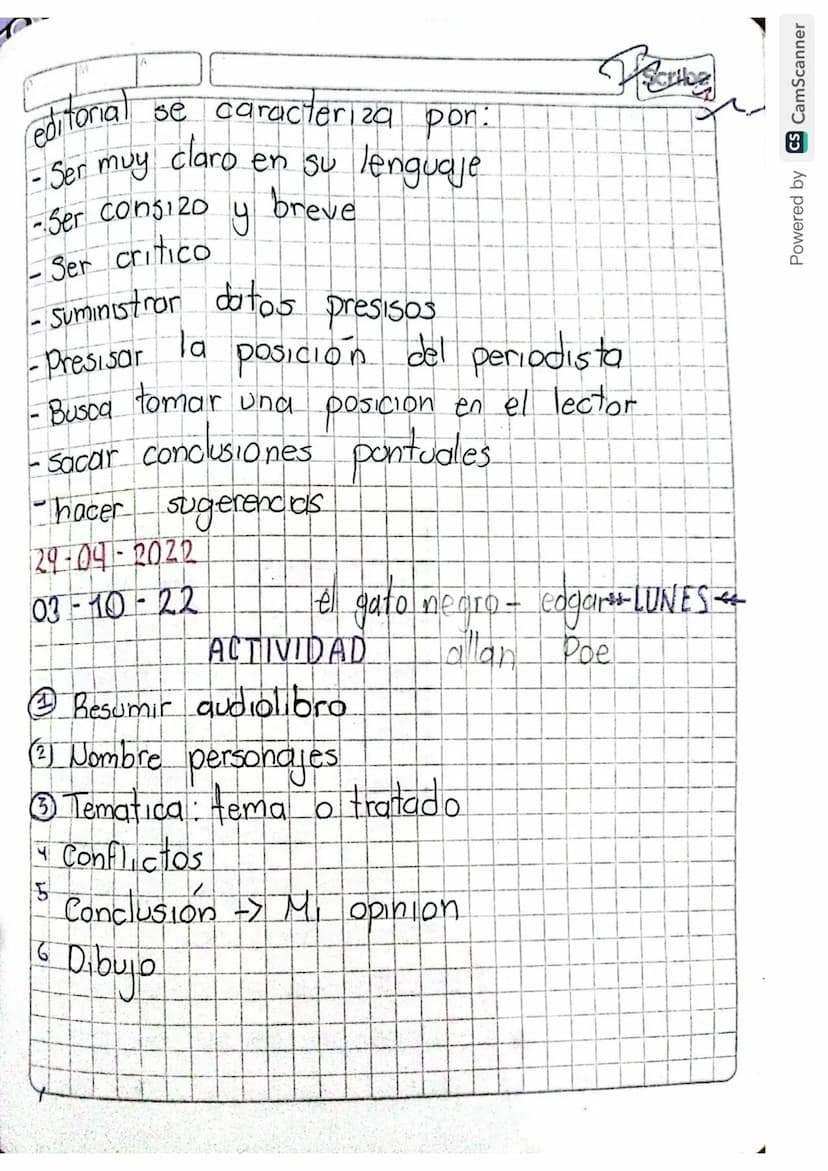 Scribe
editorial se caracteriza por:
- Ser muy claro en su lenguaje
- Ser consizo y breve
- Ser critico
- suministrar datos presisos
- Presisar la posición del periodista
- Busca tomar una posicion en el lector
- sacar conclusiones pontuales
- hacer sugerencias
29-04-2022
03-10-22 el gato negro - edgar LUNES
ACTIVIDAD allan Poe
1 Resumir audiolibro
2 Nombre personajes
3 Tematica: tema o tratado
4 Conflictos
5 Conclusión -> Mi opinion
6 Dibujo
Powered by CS CamScanner